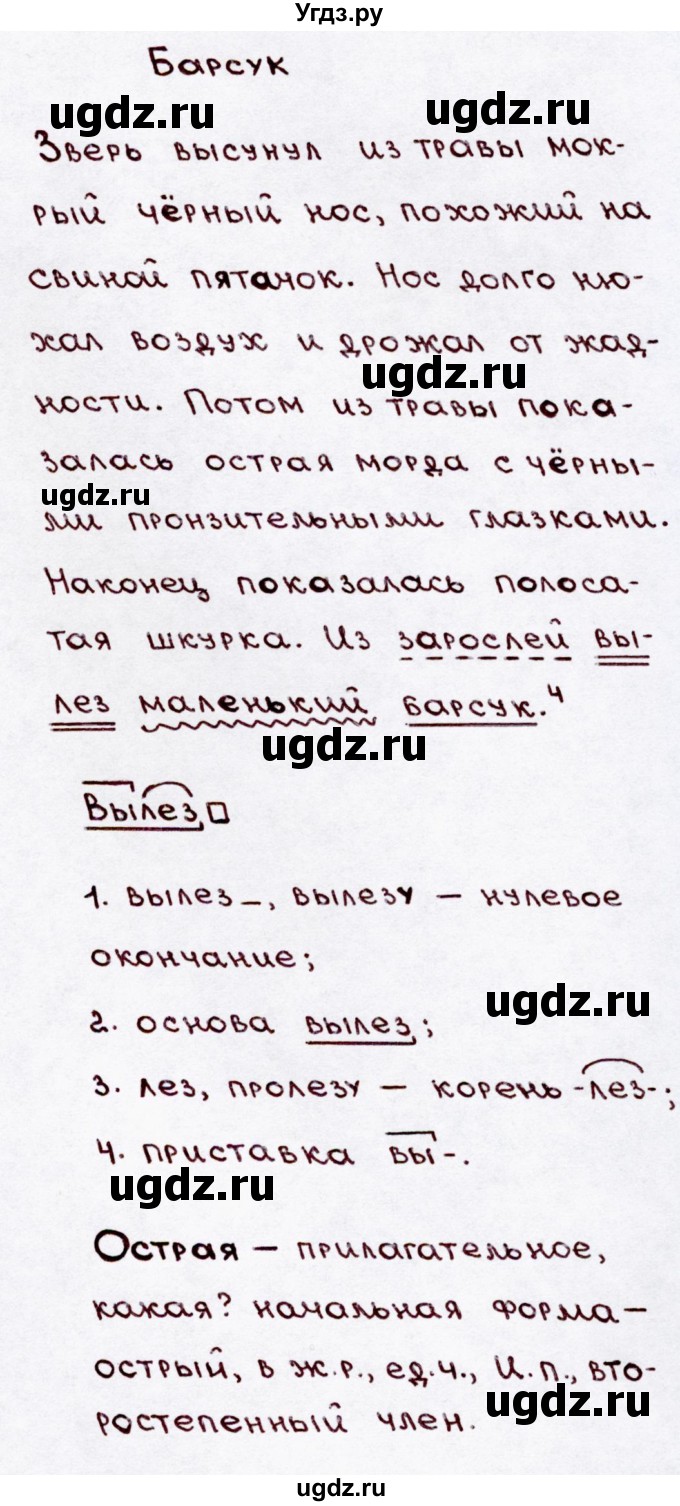 Угдз.ру
Барсук
ugdz.ru ugdz.ru
Зверь высунул из травы мок-
рый чёрный нос, похожий на
свиной пятачок. Нос долго ню-
хал воздух и дрожал от жад-
ugdz.ru
ности. Потом из травы пока-
залась острая морда с чёрны-
ugdz.ru
ми пронзительными глазками.
Наконец показалась полоса-
тая шкурка. Из зарослей вы-
лез маленький барсук.4
ugdz.ru
Вылез
1. вылез_, вылезу – нулевое
окончание;
ugdz.ru
2. основа вылез;
3. лез, пролезу – корень -лез-;
4. приставка вы-.
ugdz.ru
Острая – прилагательное,
какая? начальная форма –
острый, в ж.р., ед.ч., И.п., вто-
ugdz.ru
ростепенный член.
ugdz.ru